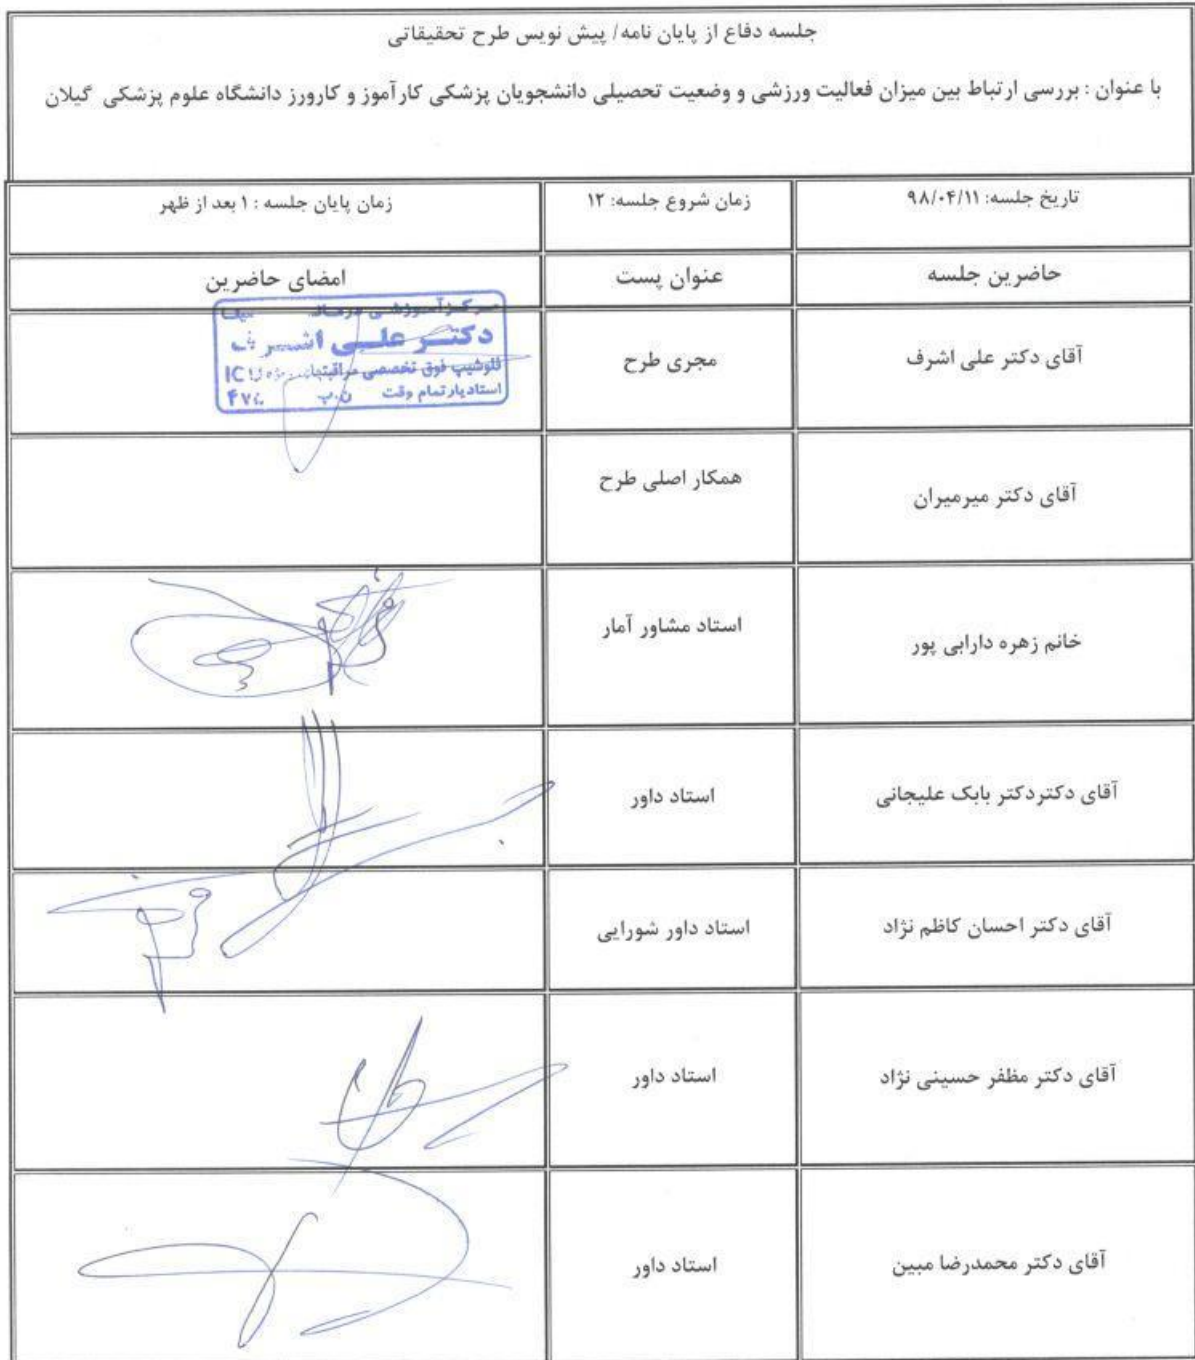 جلسه دفاع از پایان نامه/ پیش نویس طرح تحقیقاتی
با عنوان : بررسی ارتباط بین میزان فعالیت ورزشی و وضعیت تحصیلی دانشجویان پزشکی کارآموز و کارورز دانشگاه علوم پزشکی گیلان
تاریخ جلسه: ۹۸/۰۴/۱۱ زمان شروع جلسه: ۱۲ زمان پایان جلسه : ۱ بعد از ظهر
حاضرین جلسه عنوان پست امضای حاضرین
آقای دکتر علی اشرف مجری طرح
دکتر علی اشرف
فلوشیپ فوق تخصصی
استادیار تمام وقت ن.پ
آقای دکتر میرمیران همکار اصلی طرح
خانم زهره دارابی پور استاد مشاور آمار
آقای دکتردکتر بابک علیجانی استاد داور
آقای دکتر احسان کاظم نژاد استاد داور شورایی
آقای دکتر مظفر حسینی نژاد استاد داور
آقای دکتر محمدرضا مبین استاد داور